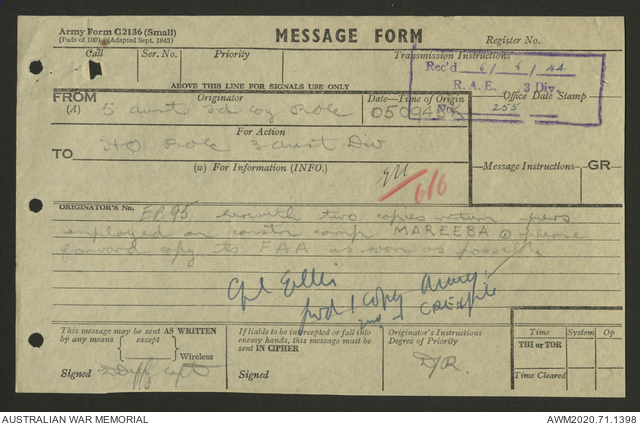 Army Form G2136 (Small)
(Pads of 100) (Adapted Sept. 1943)
MESSAGE FORM
Register No.
Call
Ser. No.
Priority
Transmission Instructions
Rec'd 6/6/44
R.A.E. 3 Div.
No. 255
ABOVE THIS LINE FOR SIGNALS USE ONLY
FROM
(A)
Originator
Date-Time of Origin
Office Date Stamp
5 Aust Fd Coy RAE
For Action
TO
HQ RAE 3 Aust Div
(w) For Information (INFO.)
Message Instructions
GR
6/6
ORIGINATOR'S No.
EB95 herewith two copies return pers
employed on constr camp MAREEBA please
forward copy to FAA as soon as possible
Cpl Ellis
fwd 1 copy Army
2nd
This message may be sent AS WRITTEN
by any means
except
Wireless
Signed
Duffy Capt
If liable to be intercepted or fall into
enemy hands, this message must be
sent IN CIPHER
Signed
Originator's Instructions
Degree of Priority
D/R
Time
System
Op
THI or TOR
Time Cleared
AUSTRALIAN WAR MEMORIAL
AWM2020.71.1398